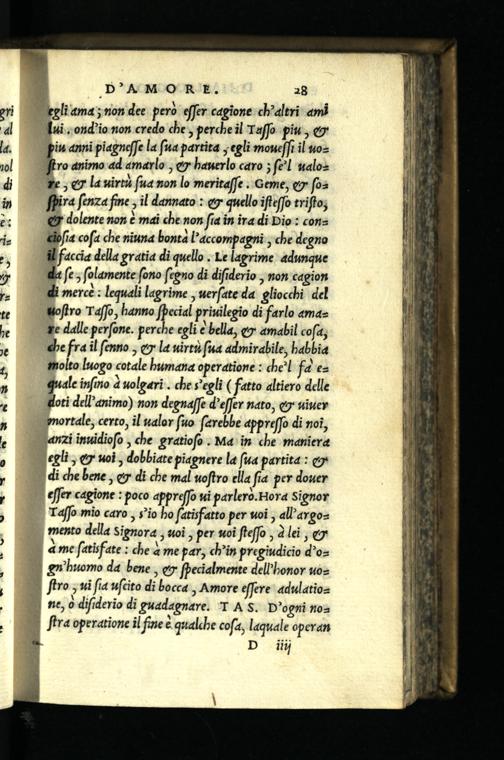 D'AMORE. 28
egli ama; non dee però esser cagione ch'altri ami
lui. ond'io non credo che, perche il Tasso piu, &
piu anni piagnesse la sua partita, egli movessi il vo-
stro animo ad amarlo, & haverlo caro; se'l valo-
re, & la virtù sua non lo meritasse. Geme, & so-
spira senza fine, il dannato: & quello istesso tristo,
& dolente non è mai che non sia in ira di Dio: con-
ciosia cosa che niuna bontà l'accompagni, che degno
il faccia della gratia di quello. Le lagrime adunque
da se, solamente sono segno di disiderio, non cagion
di mercè: lequali lagrime, versate da gliocchi del
vostro Tasso, hanno special privilegio di farlo ama-
re dalle persone. perche egli è bella, & amabil cosa,
che fra il senno, & la virtù sua admirabile, habbia
molto luogo cotale humana operatione: che'l fà e-
quale insino à volgari. che s'egli (fatto altiero delle
doti dell'animo) non degnasse d'esser nato, & viver
mortale, certo, il valor suo sarebbe appresso di noi,
anzi invidioso, che gratioso. Ma in che maniera
egli, & voi, dobbiate piagnere la sua partita: &
di che bene, & di che mal vostro ella sia per dover
esser cagione: poco appresso vi parlerò. Hora Signor
Tasso mio caro, s'io ho satisfatto per voi, all'argo-
mento della Signora, voi, per voi stesso, à lei, &
à me satisfate: che à me par, ch'in pregiudicio d'o-
gn'huomo da bene, & specialmente dell'honor vo-
stro, vi sia uscito di bocca, Amore essere adulatio-
ne, ò disiderio di guadagnare. TAS. D'ogni no-
stra operatione il fine è qualche cosa, laquale operan
D iiij